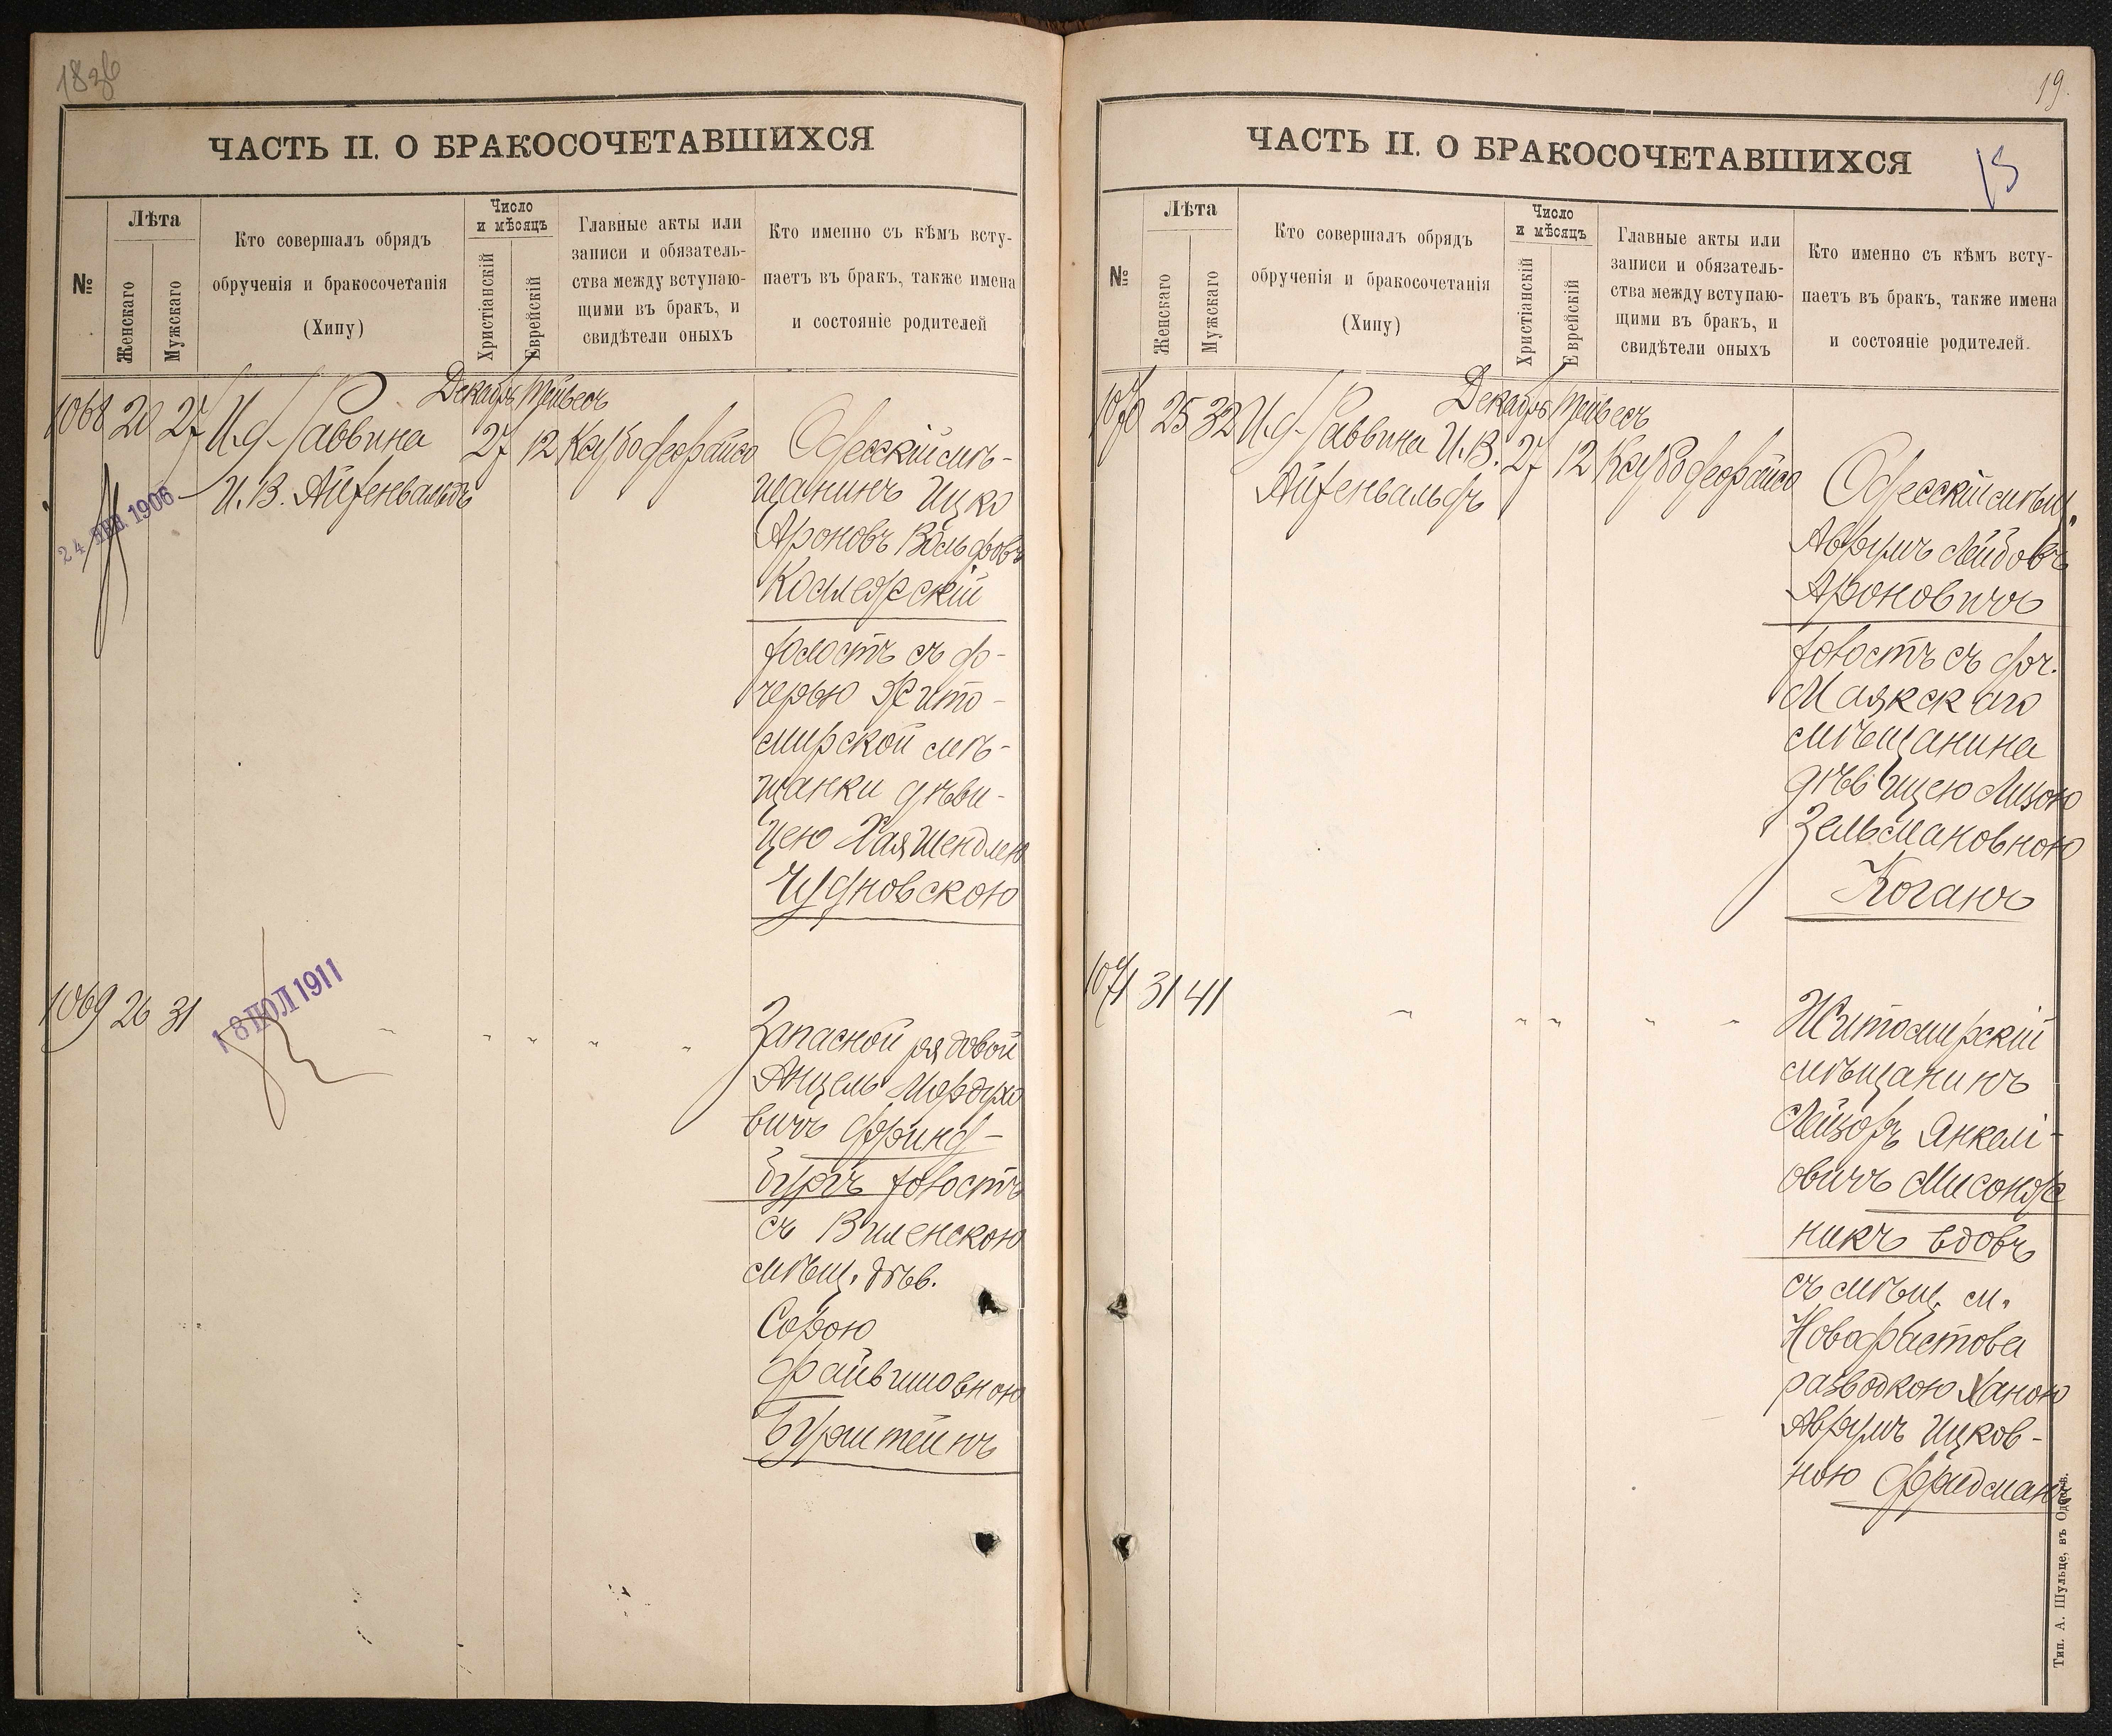 18 зб
ЧАСТЬ II. О БРАКОСОЧЕТАВШИХСЯ
№
Лѣта
Женскаго
Мужскаго
Кто совершалъ обрядъ
обрученія и бракосочетанія
(Хипу)
Число
и мѣсяцъ
Христіанскій
Еврейскій
Главные акты или
записи и обязатель-
ства между вступаю-
щими въ бракъ, и
свидѣтели оныхъ
Кто именно съ кѣмъ всту-
паетъ въ бракъ, также имена
и состояніе родителей
1068 20 27 И. д. Раввина
И. В. Айзенвальдъ
Декабрь Тейвесъ
27 12
Одесскій мѣ-
щанинъ Ицко
Ароновъ Вольфовъ
Котлярскій
холостъ съ до-
черью Жито-
мирской мѣ-
щанки дѣви-
цею Хая Шендлею
Чудновскою
24 ЯНВ. 1906
1069 26 31
18 ІЮЛ 1911
Запасной рядовой
Анцель Мордухо
вичъ Фринд-
бургъ холостъ
съ Виленскою
мѣщ. дѣв.
Сорою
Файвишовною
Бурштейнъ
19.
ЧАСТЬ II. О БРАКОСОЧЕТАВШИХСЯ
13
№
Лѣта
Женскаго
Мужскаго
Кто совершалъ обрядъ
обрученія и бракосочетанія
(Хипу)
Число
и мѣсяцъ
Христіанскій
Еврейскій
Главные акты или
записи и обязатель-
ства между вступаю-
щими въ бракъ, и
свидѣтели оныхъ
Кто именно съ кѣмъ всту-
паетъ въ бракъ, также имена
и состояніе родителей.
1070 25 32 И. д. Раввина И. В.
Айзенвальдъ
Декабрь Тейвесъ
27 12
Одесскій мѣщ.
Аврумъ Лейбовъ
Ароновичъ
холостъ съ доч.
Маякскаго
мѣщанина
дѣвицею Лизою
Зельмановною
Коганъ
1071 31 41
Житомирскій
мѣщанинъ
Лейзоръ Янкелі-
овичъ Мисонж
никъ вдовъ
съ мѣщ. м.
Новофастова
разводкою Ханою
Аврумъ Ицков-
ною Фридманъ
Тип. А. Шульце, въ Одессѣ.